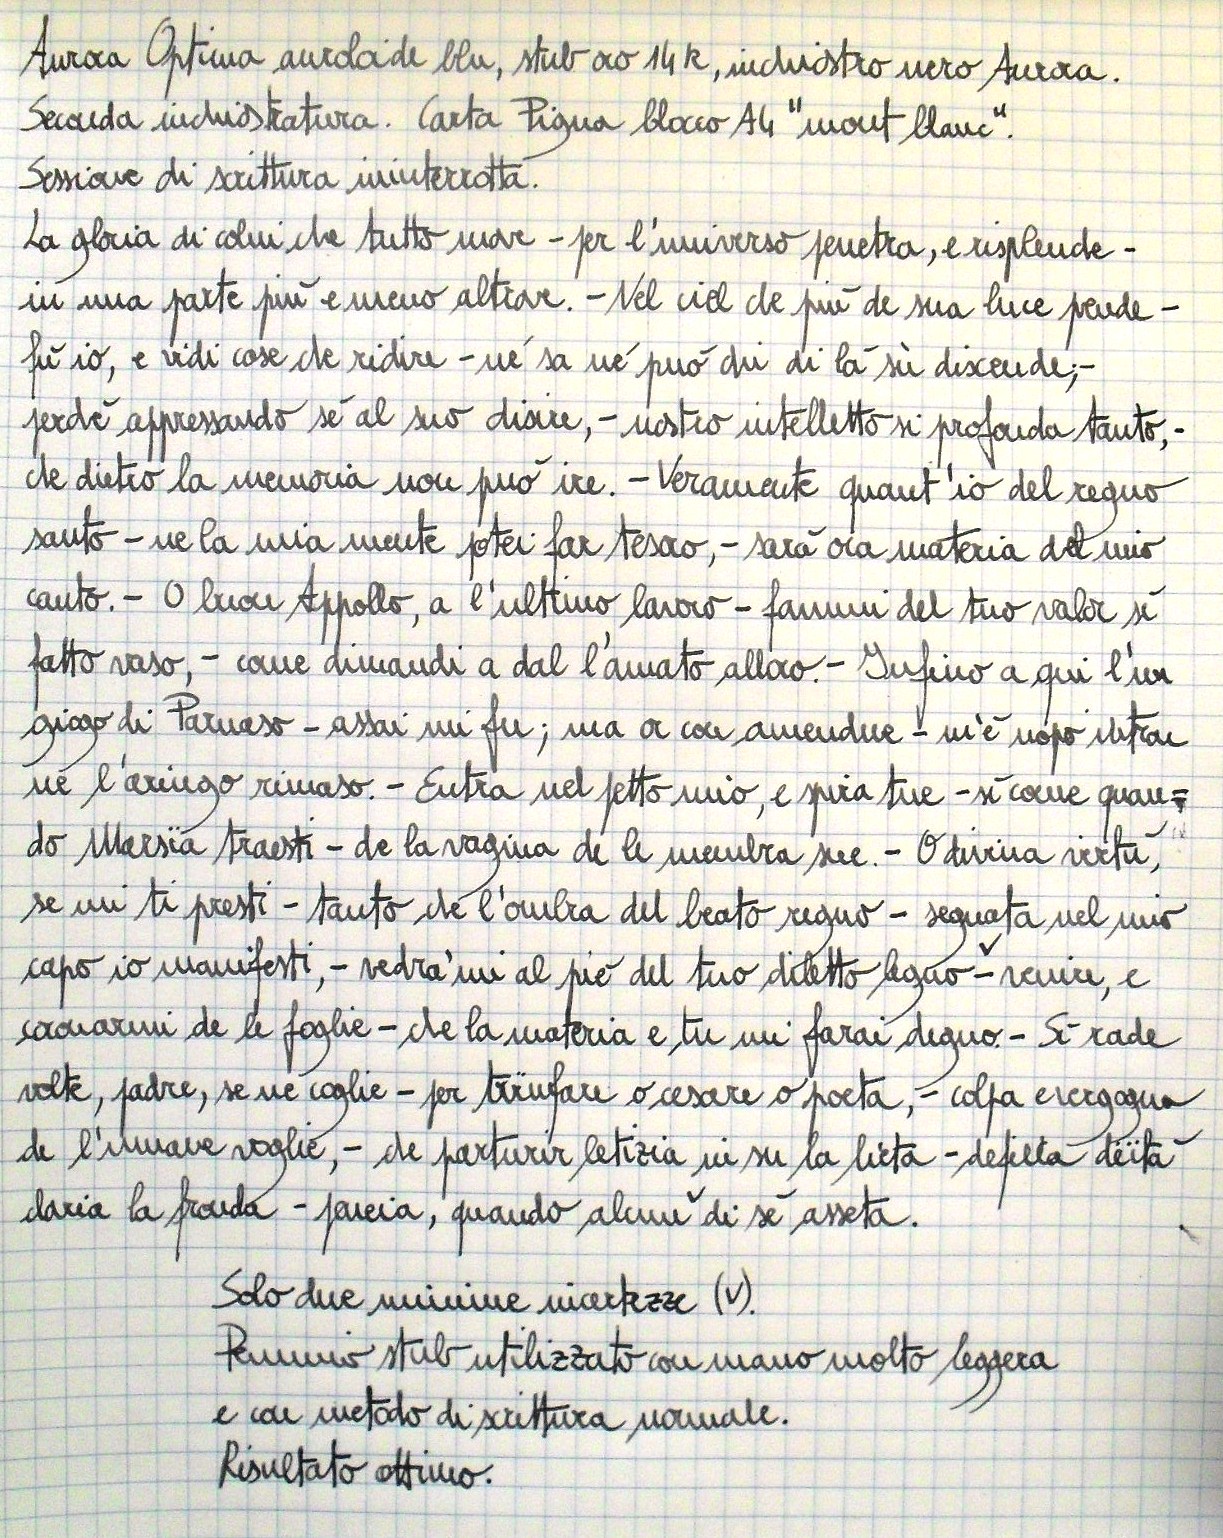 Aurora Optima auroloide blu, stub oro 14 k, inchiostro nero Aurora.
Seconda inchiostratura. Carta Pigna blocco A4 "mont blanc".
Sessione di scrittura ininterrotta.
La gloria di colui che tutto move - per l'universo penetra, e risplende -
in una parte più e meno altrove. - Nel ciel che più de sua luce prende -
fù io, e vidi cose che ridire - né sa né può chi di là sù discende; -
perché appressando sé al suo disire, - nostro intelletto si profonda tanto, -
che dietro la memoria non può ire. - Veramente quant'io del regno
santo - ne la mia mente potei far tesoro, - sarà ora materia del mio
canto. - O buon Appollo, a l'ultimo lavoro - fammi del tuo valor sì
fatto vaso, - come dimandi a dar l'amato alloro. - Infino a qui l'un
giogo di Parnaso - assai mi fu; ma or con amendue - m'è uopo intrar
ne l'aringo rimaso. - Entra nel petto mio, e spira tue - sì come quan=
do Marsïa traesti - de la vagina de le membra sue. - O divina virtù,
se mi ti presti - tanto che l'ombra del beato regno - segnata nel mio
capo io manifesti, - vedra'mi al piè del tuo diletto legno - venire, e
coronarmi de le foglie - che la materia e tu mi farai degno. - Sì rade
volte, padre, se ne coglie - per trïunfare o cesare o poeta, - colpa e vergogna
de l'umane voglie, - che parturir letizia in su la lieta - delfica dëità
daria la fronda - peneia, quando alcun di sé asseta.
Solo due minime incertezze (v).
Pennino stub utilizzato con mano molto leggera
e con metodo di scrittura normale.
Risultato ottimo.